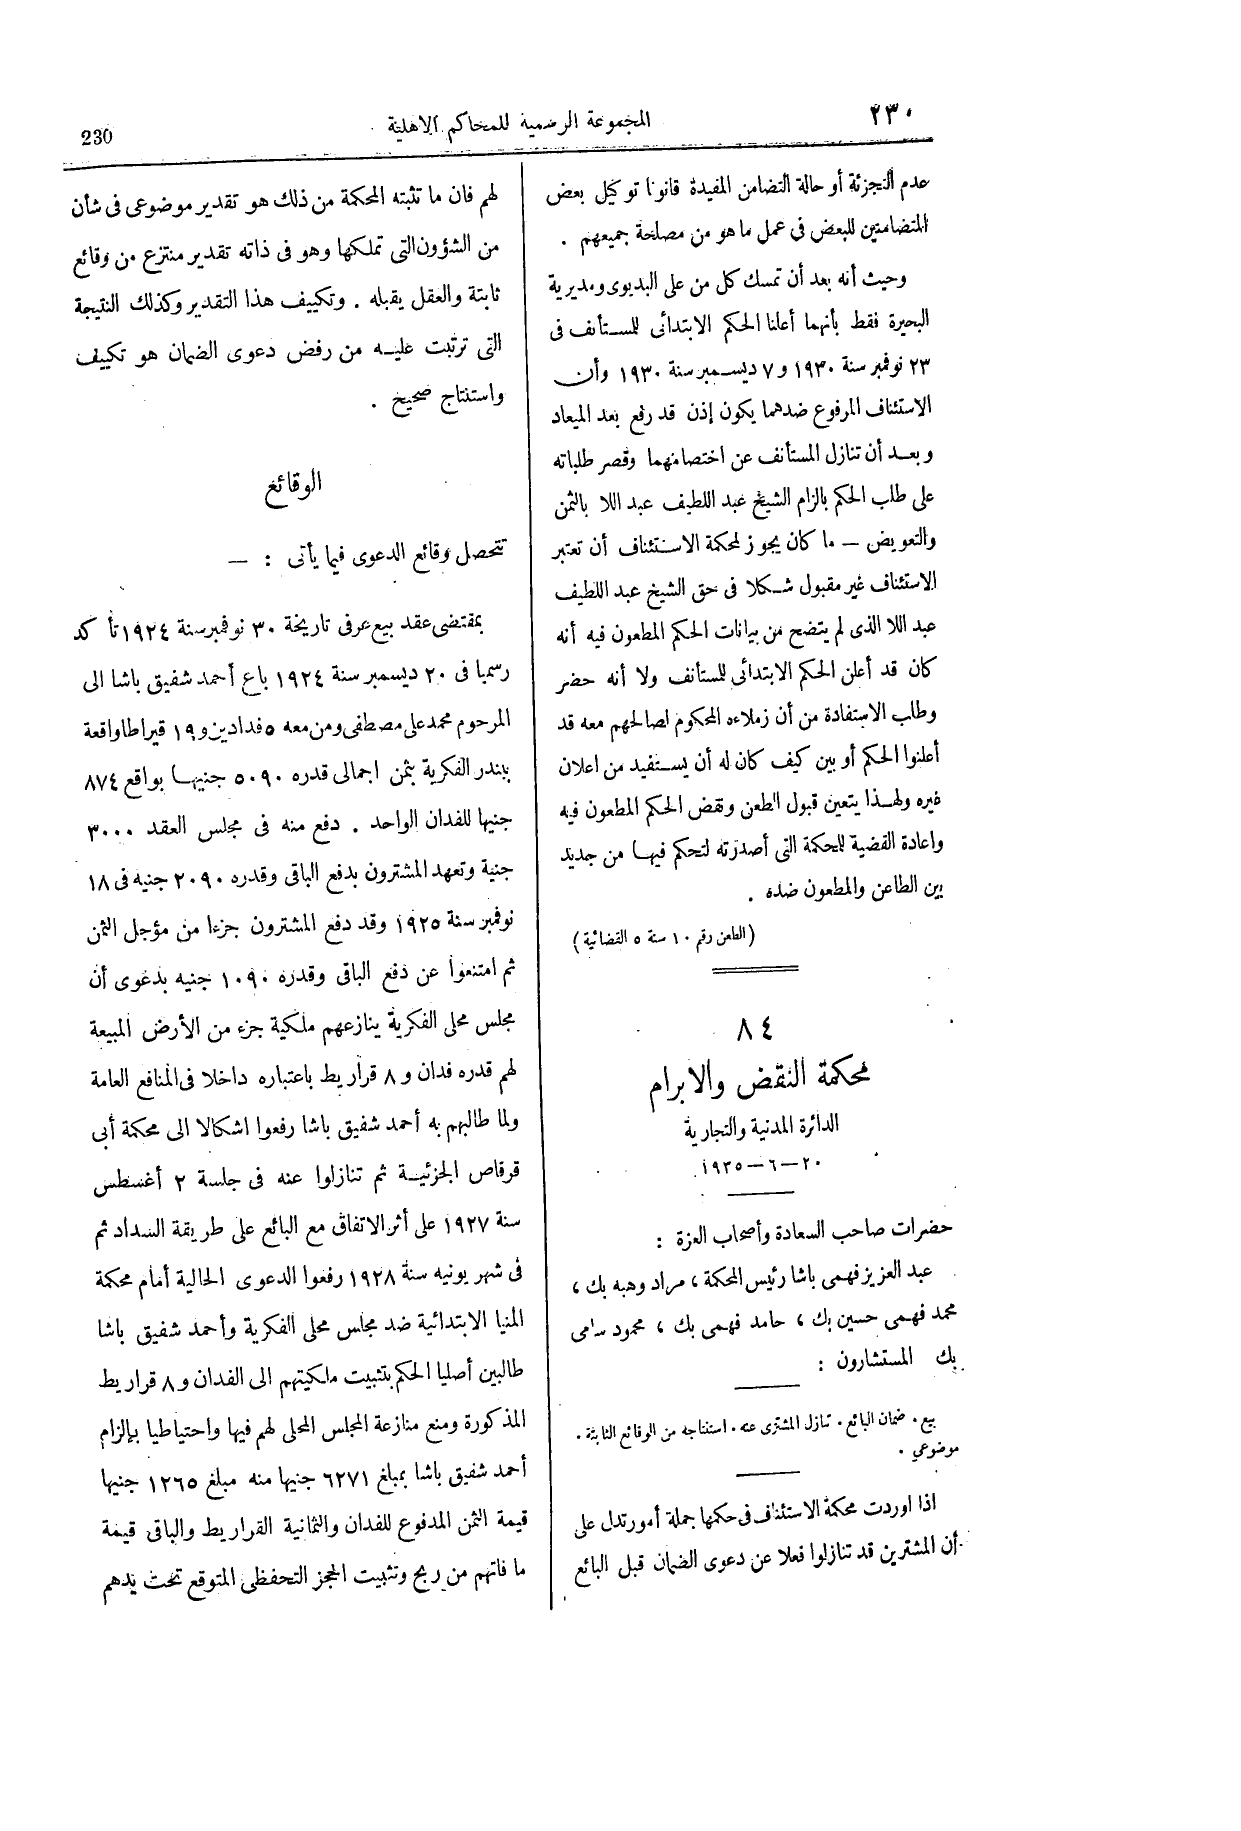 ٢٣٠
المجموعة الرسمية للمحاكم الأهلية
230
عدم التجزئة أو حالة التضامن المفيدة قانونا توكيل بعض
المتضامنين للبعض فى عمل ما هو من مصلحة جميعهم .
وحيث أنه بعد أن تمسك كل من على البديوى ومديرية
البحيرة فقط بأنهما أعلنا الحكم الابتدائى للمستأنف فى
٢٣ نوفمبر سنة ١٩٣٠ و٧ ديسمبر سنة ١٩٣٠ وأن
الاستئناف المرفوع ضدهما يكون إذن قد رفع بعد الميعاد
وبعد أن تنازل المستأنف عن اختصامهما وقصر طلباته
على طلب الحكم بالزام الشيخ عبد اللطيف عبد اللا بالثمن
والتعويض — ما كان يجوز لمحكمة الاستئناف أن تعتبر
الاستئناف غير مقبول شكلا فى حق الشيخ عبد اللطيف
عبد اللا الذى لم يتضح من بيانات الحكم المطعون فيه أنه
كان قد أعلن الحكم الابتدائى للمستأنف ولا أنه حضر
وطلب الاستفادة من أن زملاءه المحكوم لصالحهم معه قد
أعلنوا الحكم أو بين كيف كان له أن يستفيد من اعلان
غيره ولهذا يتعين قبول الطعن ونقض الحكم المطعون فيه
واعادة القضية للمحكمة التى أصدرته لتحكم فيها من جديد
بين الطاعن والمطعون ضده .
(الطعن رقم ١٠ سنة ٥ القضائية)
٨٤
محكمة النقض والابرام
الدائرة المدنية والتجارية
٢٠—٦—١٩٣٥
حضرات صاحب السعادة وأصحاب العزة :
عبد العزيز فهمى باشا رئيس المحكمة ، مراد وهبه بك ،
محمد فهمى حسين بك ، حامد فهمى بك ، محمود سامى
بك المستشارون :
بيع . ضمان البائع . تنازل المشترى عنه . استنتاجه من الوقائع الثابتة .
موضوعي .
اذا اوردت محكمة الاستئناف فى حكمها جملة أمور تدل على
أن المشترين قد تنازلوا فعلا عن دعوى الضمان قبل البائع
لهم فان ما تثبته المحكمة من ذلك هو تقدير موضوعى فى شأن
من الشؤون التى تملكها وهو فى ذاته تقدير منتزع من وقائع
ثابتة والعقل يقبله . وتكييف هذا التقدير وكذلك النتيجة
التى ترتبت عليه من رفض دعوى الضمان هو تكييف
واستنتاج صحيح .
الوقائع
تتحصل وقائع الدعوى فيما يأتى : —
بمقتضى عقد بيع عرفى تاريخة ٣٠ نوفمبر سنة ١٩٢٤ تأكد
رسميا فى ٢٠ ديسمبر سنة ١٩٢٤ باع أحمد شفيق باشا الى
المرحوم محمد على مصطفى ومن معه ٥ فدادين و١٩ قيراطا واقعة
ببندر الفكرية بثمن اجمالى قدره ٥٠٩٠ جنيها بواقع ٨٧٤
جنيها للفدان الواحد . دفع منه فى مجلس العقد ٣٠٠٠
جنية وتعهد المشترون بدفع الباقى وقدره ٢٠٩٠ جنيه فى ١٨
نوفمبر سنة ١٩٢٥ وقد دفع المشترون جزءا من مؤجل الثمن
ثم امتنعوا عن دفع الباقى وقدره ١٠٩٠ جنيه بدعوى أن
مجلس محلى الفكرية ينازعهم ملكية جزء من الأرض المبيعة
لهم قدره فدان و٨ قراريط باعتباره داخلا فى المنافع العامة
ولما طالبهم به أحمد شفيق باشا رفعوا اشكالا الى محكمة أبى
قرقاص الجزئية ثم تنازلوا عنه فى جلسة ٢ أغسطس
سنة ١٩٢٧ على أثر الاتفاق مع البائع على طريقة السداد ثم
فى شهر يونيه سنة ١٩٢٨ رفعوا الدعوى الحالية أمام محكمة
المنيا الابتدائية ضد مجلس محلى الفكرية وأحمد شفيق باشا
طالبين أصليا الحكم بتثبيت ملكيتهم الى الفدان و٨ قراريط
المذكورة ومنع منازعة المجلس المحلى لهم فيها واحتياطيا بإلزام
أحمد شفيق باشا بمبلغ ٦٢٧١ جنيها منه مبلغ ١٢٦٥ جنيها
قيمة الثمن المدفوع للفدان والثمانية القراريط والباقى قيمة
ما فاتهم من ربح وتثبيت الحجز التحفظى المتوقع تحت يدهم